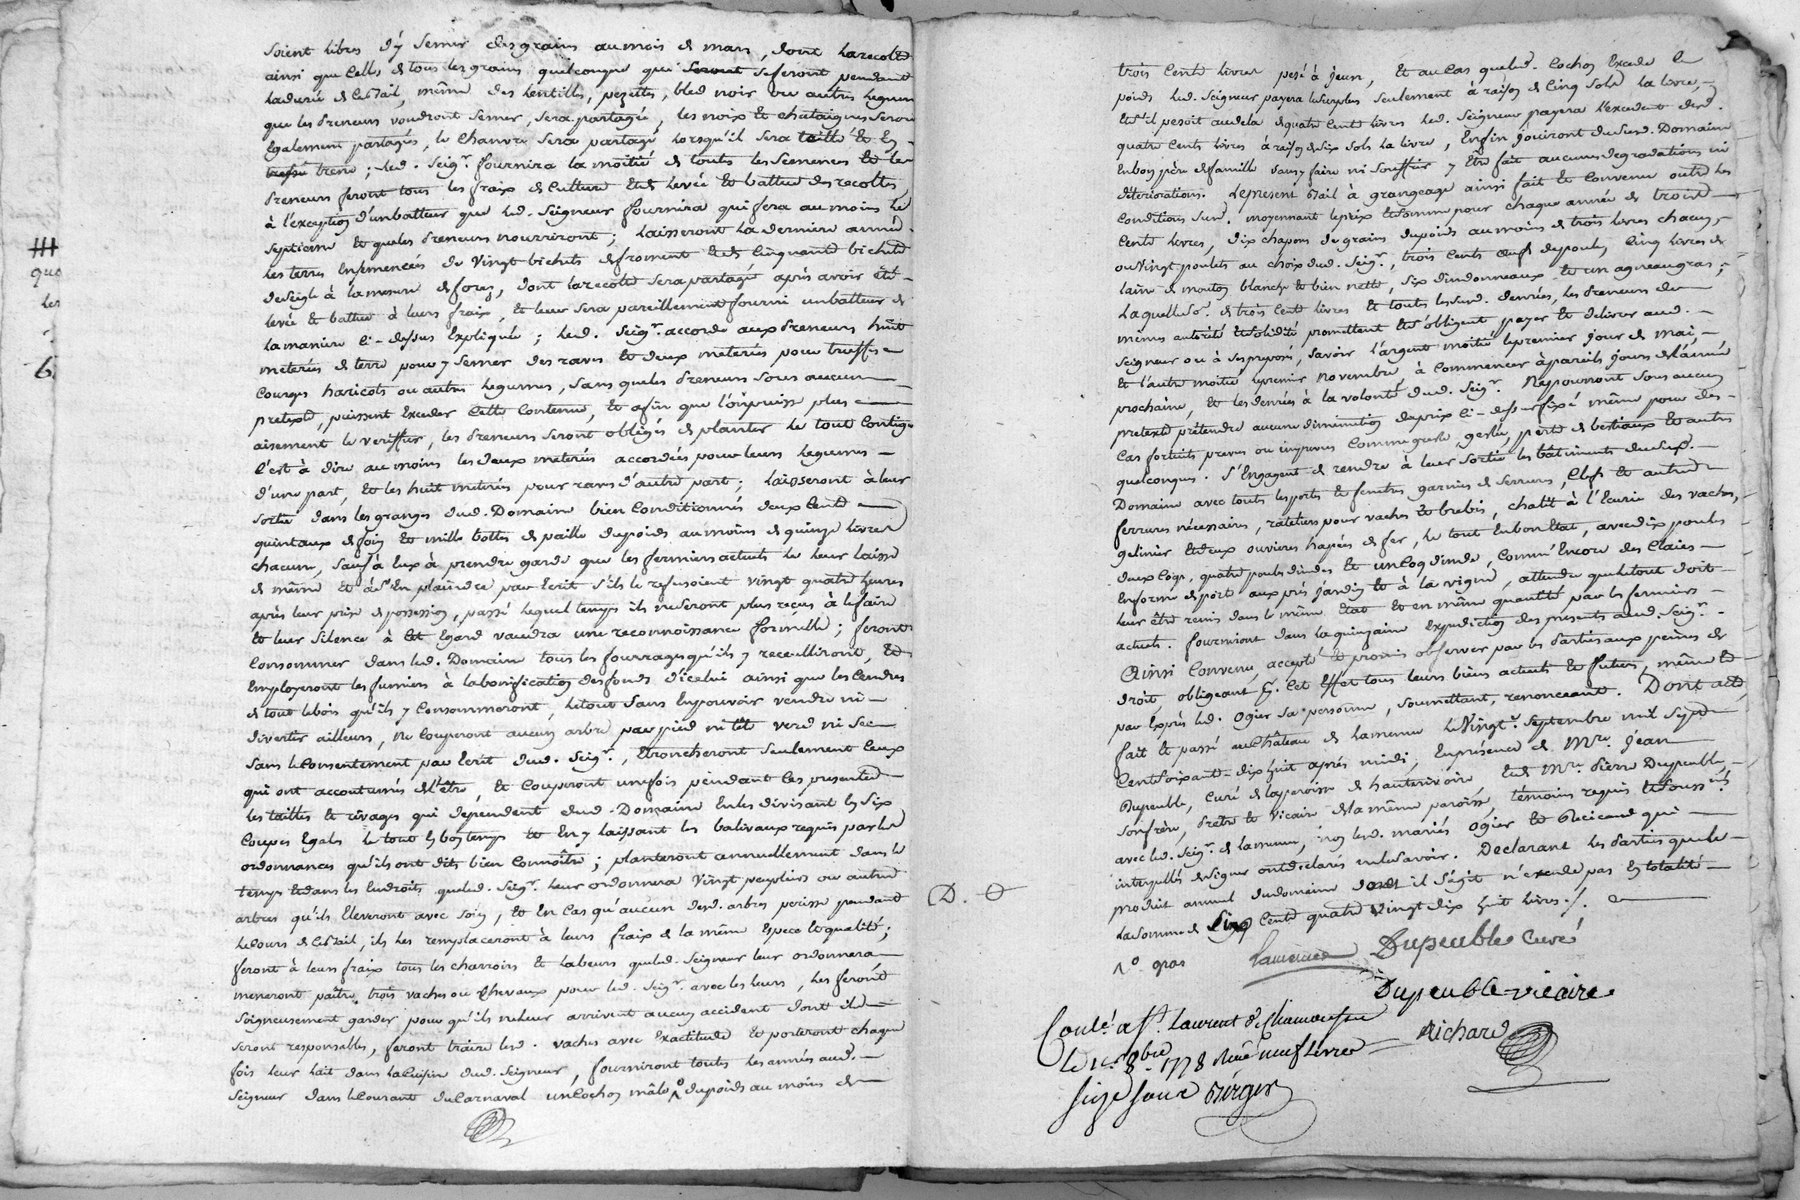 soient libres d'y semer des grains au mois de mars, dont la recolte
ainsi que celle de tous les grains quelconque qui seront se feront pendant
la durée de ce bail, même des lentilles, pezettes, bled noir ou autres legumes
que les preneurs voudront semer, sera partagée, les noix et chataignes seront
egalement partagés, le chanvre sera partagé lorsqu'il sera taillé et en
treine; led. Seigr. fournira la moitié de toutes les semences et les
preneurs feront tous les fraix de culture et de levée et battue des recoltes,
à l'exception d'un batteur que led. Seigneur fournira qui fera au moins le
septieme et que les preneurs nourriront; laisseront la derniere année
les terres ensemencées de vingt bichets de froment et de cinquante bichets
de seigle à la mesure de forez, dont la recolte sera partagée après avoir été
levée et battue à leurs fraix, et leur sera pareillement fourni un batteur de
la maniere ci-dessus expliquée; led. Seigr. accorde aux preneurs huit
meterées de terre pour y semer des raves et deux meterées pour truffes
courges haricots ou autres legumes, sans que les preneurs sous aucun
pretexte, puissent exceder cette contenue, et afin que l'on puisse plus
aisement le veriffier, les preneurs seront obligés de planter le tout contigu
c'est à dire au moins les deux meterées accordées pour leurs legumes
d'une part, et les huit meterées pour raves d'autre part; laisseront à leur
sortie dans les granges dud. Domaine bien conditionnés deux cents
quintaux de foin et mille bottes de paille du poids au moins de quinze livres
chacune, sauf à eux à prendre garde que les fermiers actuels le leur laisse
de même et de s'en plaindre par ecrit s'ils le refusoient vingt quatre heures
après leur prise de possession, passé lequel temps ils ne seront plus reçus à le faire
et leur silence à cet egard vaudra une reconnoissance formelle; feront
consommer dans led. Domaine tous les fourrages qu'ils y receuilliront, et
employeront les fumiers à la bonification des fonds d'icelui ainsi que les cendres
de tout le bois qu'ils y consommeront, le tout sans en pouvoir vendre ni
divertir ailleurs, ne couperont aucun arbre par pied ni tête verd ni sec
sans le consentement par ecrit dud. Seigr., etroncheront seulement ceux
qui ont accoutumés de l'être, et couperont une fois pendant ces presentes
les taillis et rivages qui dependent dud. Domaine en les divisant en six
coupes egales le tout en bon temps et en y laissant les balivaux requis par les
ordonnances qu'ils ont dits bien connoître; planteront annuellement dans le
temps et dans les endroits que led. Seigr. leur ordonnera vingt peupliers ou autres
arbres qu'ils eleveront avec soin, et en cas qu'aucun desd. arbres perisse pendant
le cours de ce bail, ils les remplaceront à leurs fraix de la même espece et qualité;
feront à leurs fraix tous les charrois et labeurs que led. Seigneur leur ordonnera
meneront paître trois vaches ou chevaux pour led. Seigr. avec les leurs, les feront
soigneusement garder pour qu'ils ne leur arrivent aucun accident dont ils
seront responsables, feront traire lesd. vaches avec exactitude et porteront chaque
fois leur lait dans la cuisine dud. Seigneur, fourniront toutes les années aud.
Seigneur dans le courant du Carnaval un cochon mâle du poids au moins de
trois cents livres pesé à jeun, et au cas que led. cochon excede le
poids led. Seigneur payera le surplus seulement à raison de cinq sols la livre,
et s'il pesoit au dela de quatre cents livres led. Seigneur payera l'excedent desd.
quatre cents livres à raison de six sols la livre, enfin jouiront du susd. Domaine
en bon père de famille sans y faire ni souffrir y être fait aucunes degradations ni
déteriorations. Le present bail à grangeage ainsi fait et convenu outre les
conditions susd. moyennant le prix et somme pour chaque année de trois
cents livres, dix chapons de grains du poids au moins de trois livres chacun,
ou vingt poulets au choix dud. Seigr., trois cents œufs de poule, cinq livres de
laine de mouton blanche et bien nette, six dindonneaux et un agneau gras;
Laquelle so. de trois cents livres et toutes les susd. denrées, les preneurs de
mêmes autorité et solidité promettent et s'obligent payer et delivrer aud.
Seigneur ou à ses preposés, savoir l'argent moitié le premier jour de mai,
et l'autre moitié le premier novembre à commencer à pareils jours de l'année
prochaine, et les denrées à la volonté dud. Seigr. Ne pourront sous aucun
pretexte prétendre aucune diminution du prix ci-dessus fixé même pour des
cas fortuits prevus ou imprevus comme gresle, gelée, perte de bestiaux et autres
quelconques. S'engagent de rendre à leur sortie les bâtiments du susd.
Domaine avec toutes les portes et fenêtres garnies de serrures, clefs et autres
ferrures nécessaires, rateliers pour vaches et brebis, chalit à l'ecurie des vaches,
gelinier et deux ouvieres hapées de fer, le tout en bon etat, avec dix poules
deux coqs, quatre poules dindes et un coq dinde, comme encore des claies
en forme de porte aux prés jardin et à la vigne, attendu que le tout doit
leur être remis dans le même etat et en même quantité par les fermiers
actuels. fourniront dans la quinzaine expedition des presentes aud. Seigr.
Ainsi convenu, accepté et promis observer par les parties aux peines de
droit, obligeant en cet effet tous leurs biens actuels et futurs, même et
par exprès led. Ogier sa personne, soumettant, renonceant. Dont acte
fait et passé au Château de Lamerree le vingt. septembre mil sept
cent soixante-dix huit après midi, en présence de Mre. Jean
Dupeuble, curé de la paroisse de hauterivoire et de Mre. Pierre Dupeuble,
son frère, prêtre et vicaire de la même paroisse, témoins requis et soussés.
avec led. Seigr. de lamerree, non lesd. mariés Ogier et qui
interpellés de signer ont declarés ne le savoir. Declarant les parties que le
produit annuel du domaine dont il s'agit n'excede pas en totalité
la somme de cinq cents quatre vingt dix huit livres ./.
1º gras
Dupeuble Curé
Dupeuble vicaire
Richard
Conlé. a St. Laurent de Chamousset
8bre. 1778 Reçu neuf livres
Seize sous